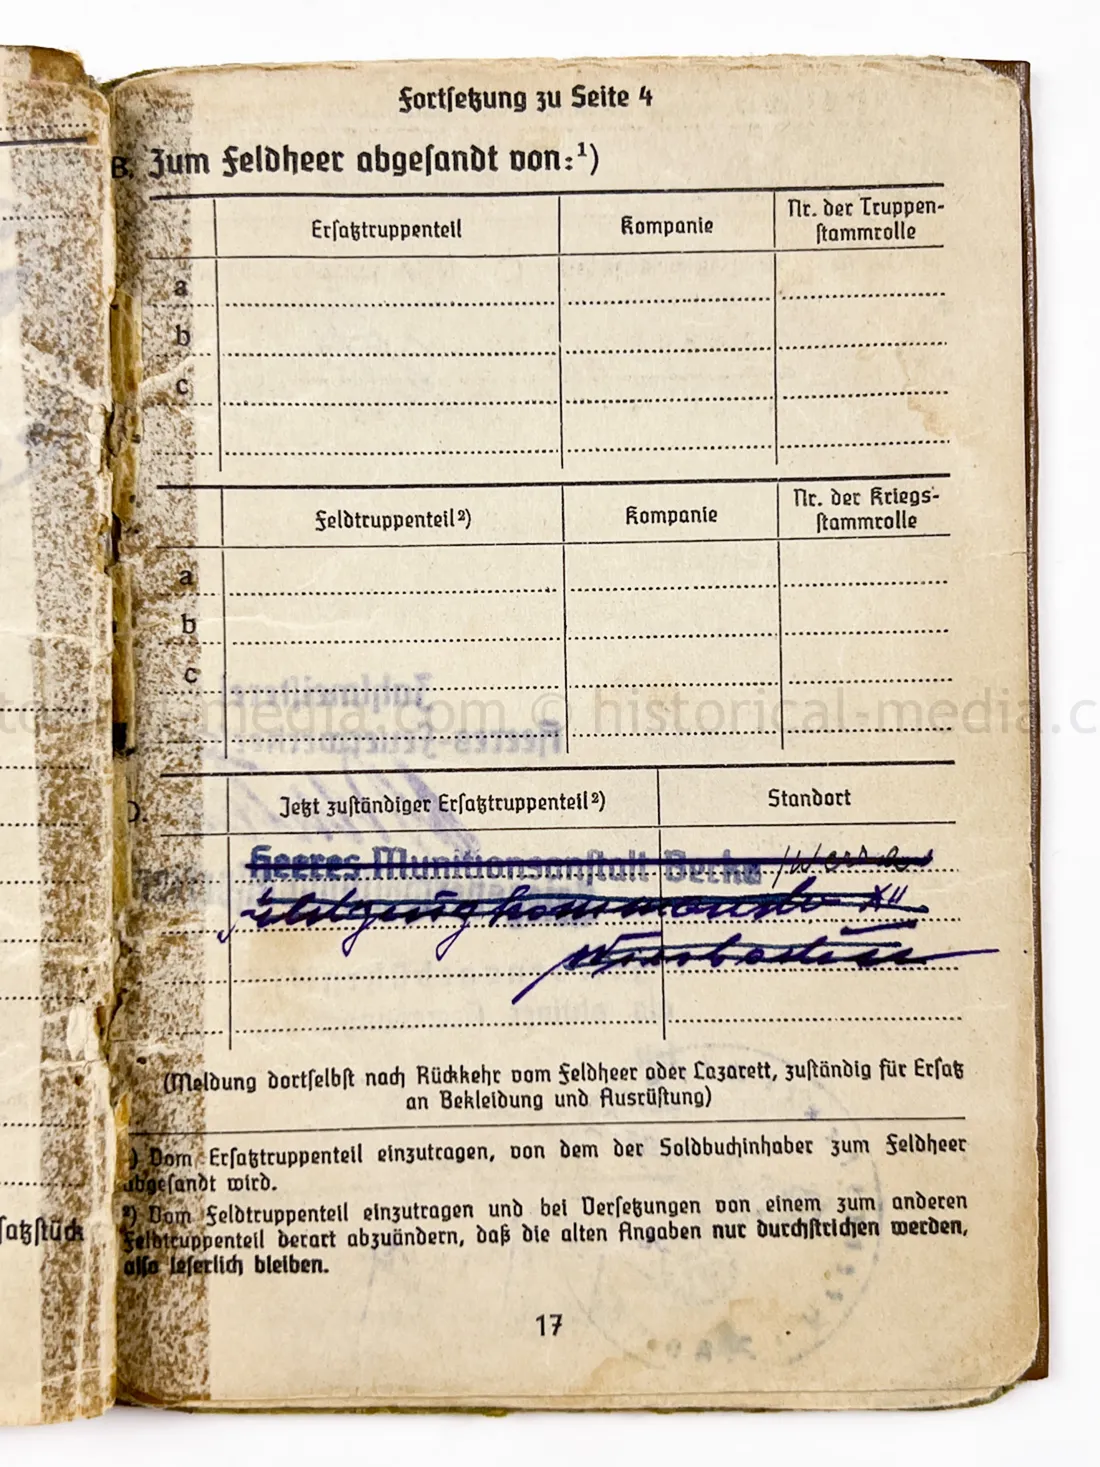 Fortsetzung zu Seite 4
B. Zum Feldheer abgesandt von:¹)
Ersatztruppenteil
Kompanie
Nr. der Truppen-
stammrolle
a
b
c
Feldtruppenteil²)
Kompanie
Nr. der Kriegs-
stammrolle
a
b
c
Zahlmeisterei
Heeres-
historical-media.com © historical-media.c
D.
Jetzt zuständiger Ersatztruppenteil²)
Standort
Heeres Munitionsanstalt Berka /Werra
Feldzeugkommando XII
Wiesbaden
(Meldung dortselbst nach Rückkehr vom Feldheer oder Lazarett, zuständig für Ersatz
an Bekleidung und Ausrüstung)
¹) Vom Ersatztruppenteil einzutragen, von dem der Soldbuchinhaber zum Feldheer
abgesandt wird.
²) Vom Feldtruppenteil einzutragen und bei Versetzungen von einem zum anderen
Feldtruppenteil derart abzuändern, daß die alten Angaben nur durchstrichen werden,
also leserlich bleiben.
satzstück
17